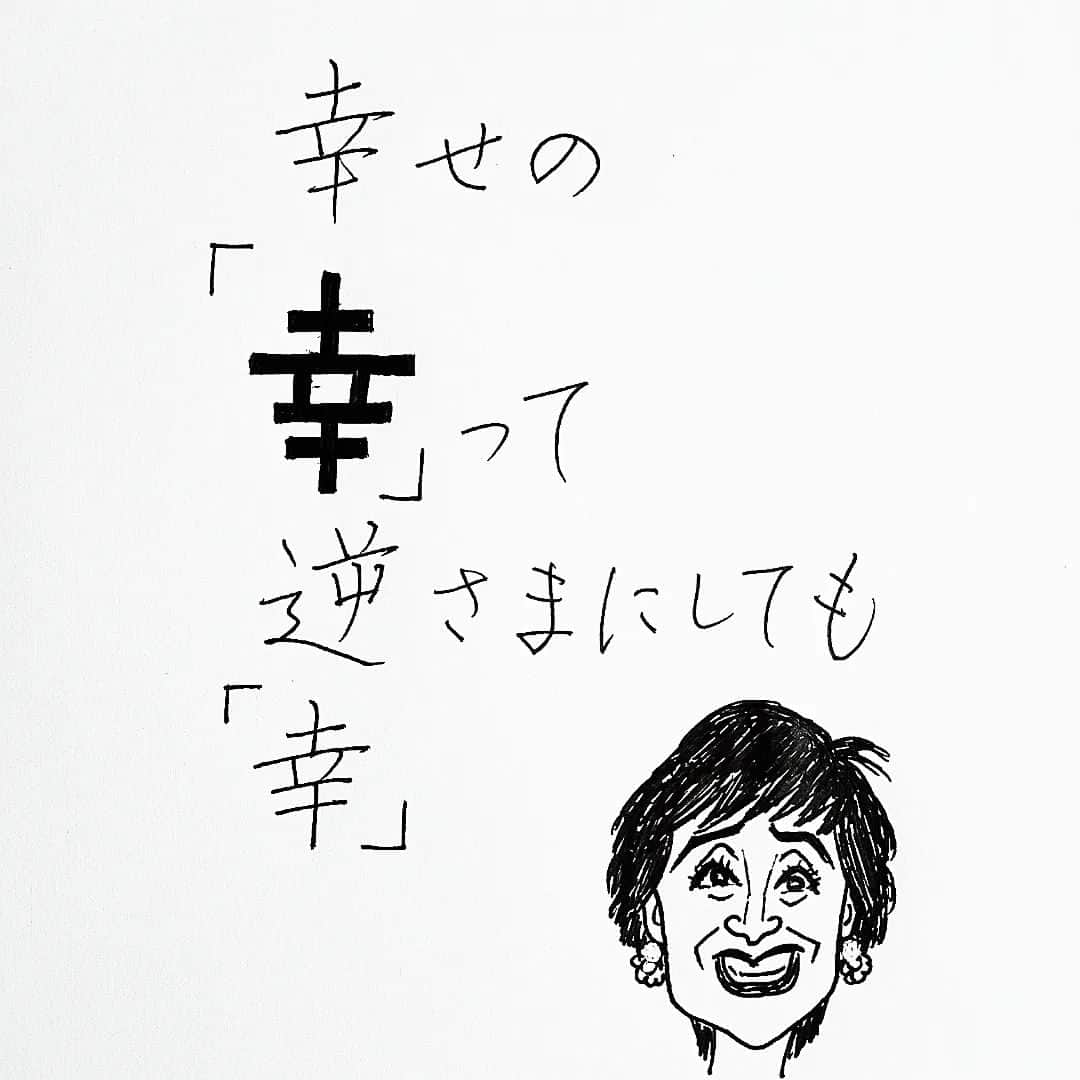 幸せの
「幸」って
逆さまにしても
「幸」